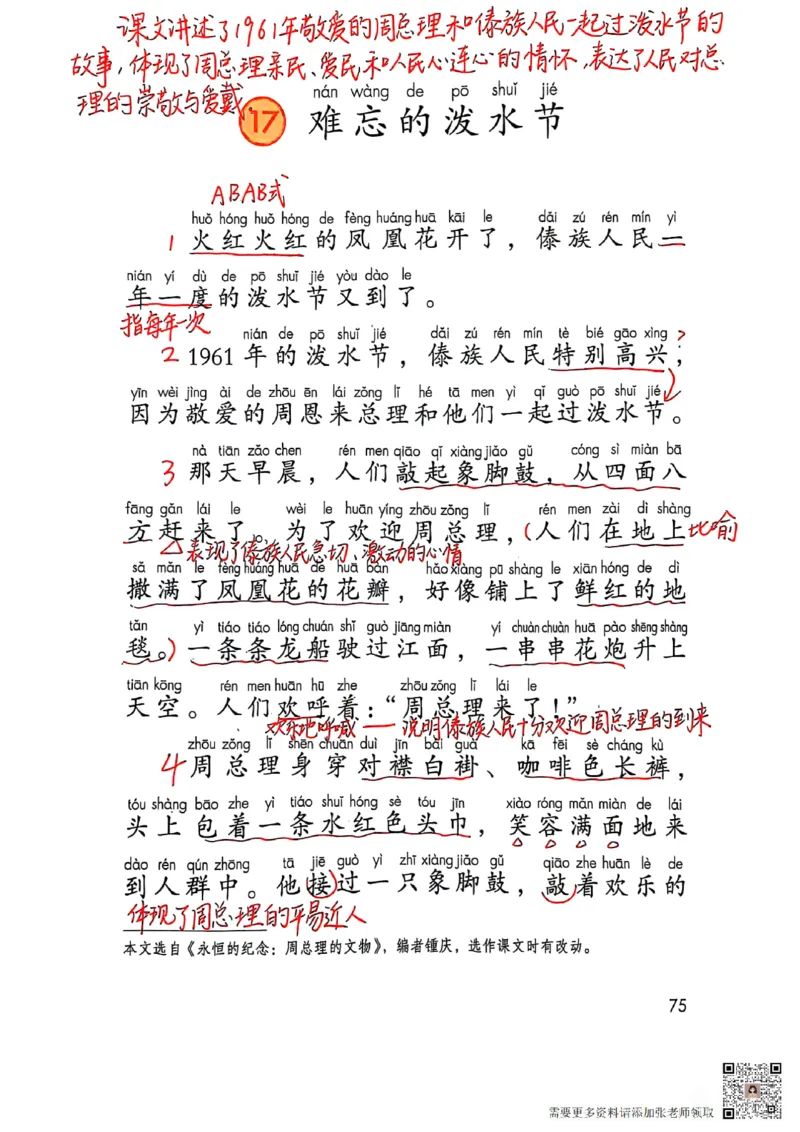 课文讲述了1961年敬爱的周总理和傣族人民一起过泼水节的
故事，体现了周总理亲民、爱民和人民心连心的情怀，表达了人民对总
理的崇敬与爱戴
nán wàng de pō shuǐ jié
17 难忘的泼水节
ABAB式
huǒ hóng huǒ hóng de fèng huáng huā kāi le dǎi zú rén mín yì
1 火红火红的凤凰花开了，傣族人民一
nián yí dù de pō shuǐ jié yòu dào le
年一度的泼水节又到了。
指每年一次
nián de pō shuǐ jié dǎi zú rén mín tè bié gāo xìng ?
2 1961年的泼水节，傣族人民特别高兴；
yīn wèi jìng ài de zhōu ēn lái zǒng lǐ hé tā men yì qǐ guò pō shuǐ jié
因为敬爱的周恩来总理和他们一起过泼水节。
nà tiān zǎo chen rén men qiāo qǐ xiàng jiǎo gǔ cóng sì miàn bā
3 那天早晨，人们敲起象脚鼓，从四面八
fāng gǎn lái le wèi le huān yíng zhōu zǒng lǐ rén men zài dì shàng
方赶来了。为了欢迎周总理，(人们在地上比喻
△表现了傣族人民急切、激动的心情
sǎ mǎn le fèng huáng huā de huā bàn hǎo xiàng pū shàng le xiān hóng de dì
撒满了凤凰花的花瓣，好像铺上了鲜红的地
tǎn yì tiáo tiáo lóng chuán shǐ guò jiāng miàn yí chuàn chuàn huā pào shēng shàng
毯。)一条条龙船驶过江面，一串串花炮升上
tiān kōng rén men huān hū zhe zhōu zǒng lǐ lái le
天空。人们欢呼着：“周总理来了！”
欢乐地呼喊——说明傣族人民十分欢迎周总理的到来
zhōu zǒng lǐ shēn chuān duì jīn bái guà kā fēi sè cháng kù
4 周总理身穿对襟白褂、咖啡色长裤，
tóu shàng bāo zhe yì tiáo shuǐ hóng sè tóu jīn xiào róng mǎn miàn de lái
头上包着一条水红色头巾，笑容满面地来
dào rén qún zhōng tā jiē guò yì zhī xiàng jiǎo gǔ qiāo zhe huān lè de
到人群中。他接过一只象脚鼓，敲着欢乐的
体现了周总理的平易近人
本文选自《永恒的纪念：周总理的文物》，编者锺庆，选作课文时有改动。
75
需要更多资料请添加张老师领取